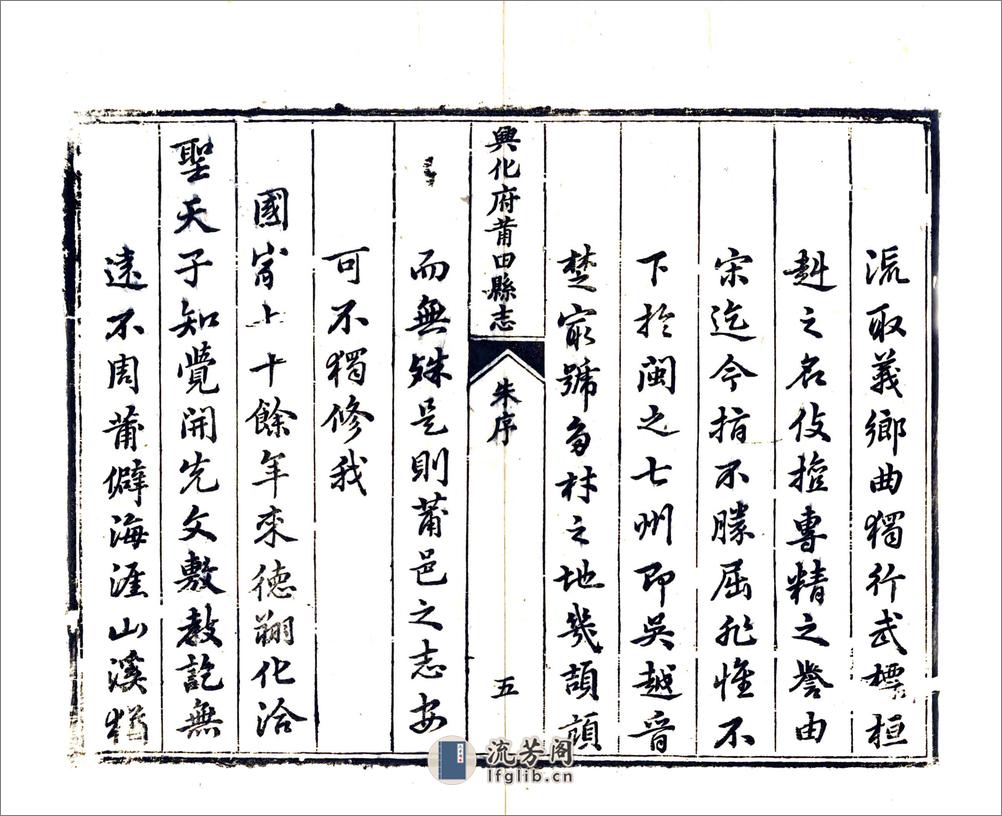 流取義鄉曲獨行武標桓
赳之名伎擅專精之譽由
宋迄今指不勝屈非惟不
下於閩之七州即吳越晉
楚最號多材之地幾頡頏
興化府莆田縣志
朱序
五
而無殊是則莆邑之志安
可不獨修我
國家上十餘年來德翔化洽
聖天子知覺開先文敷教訖無
遠不周莆僻海涯山溪猶
流芳阁
lfglib.cn